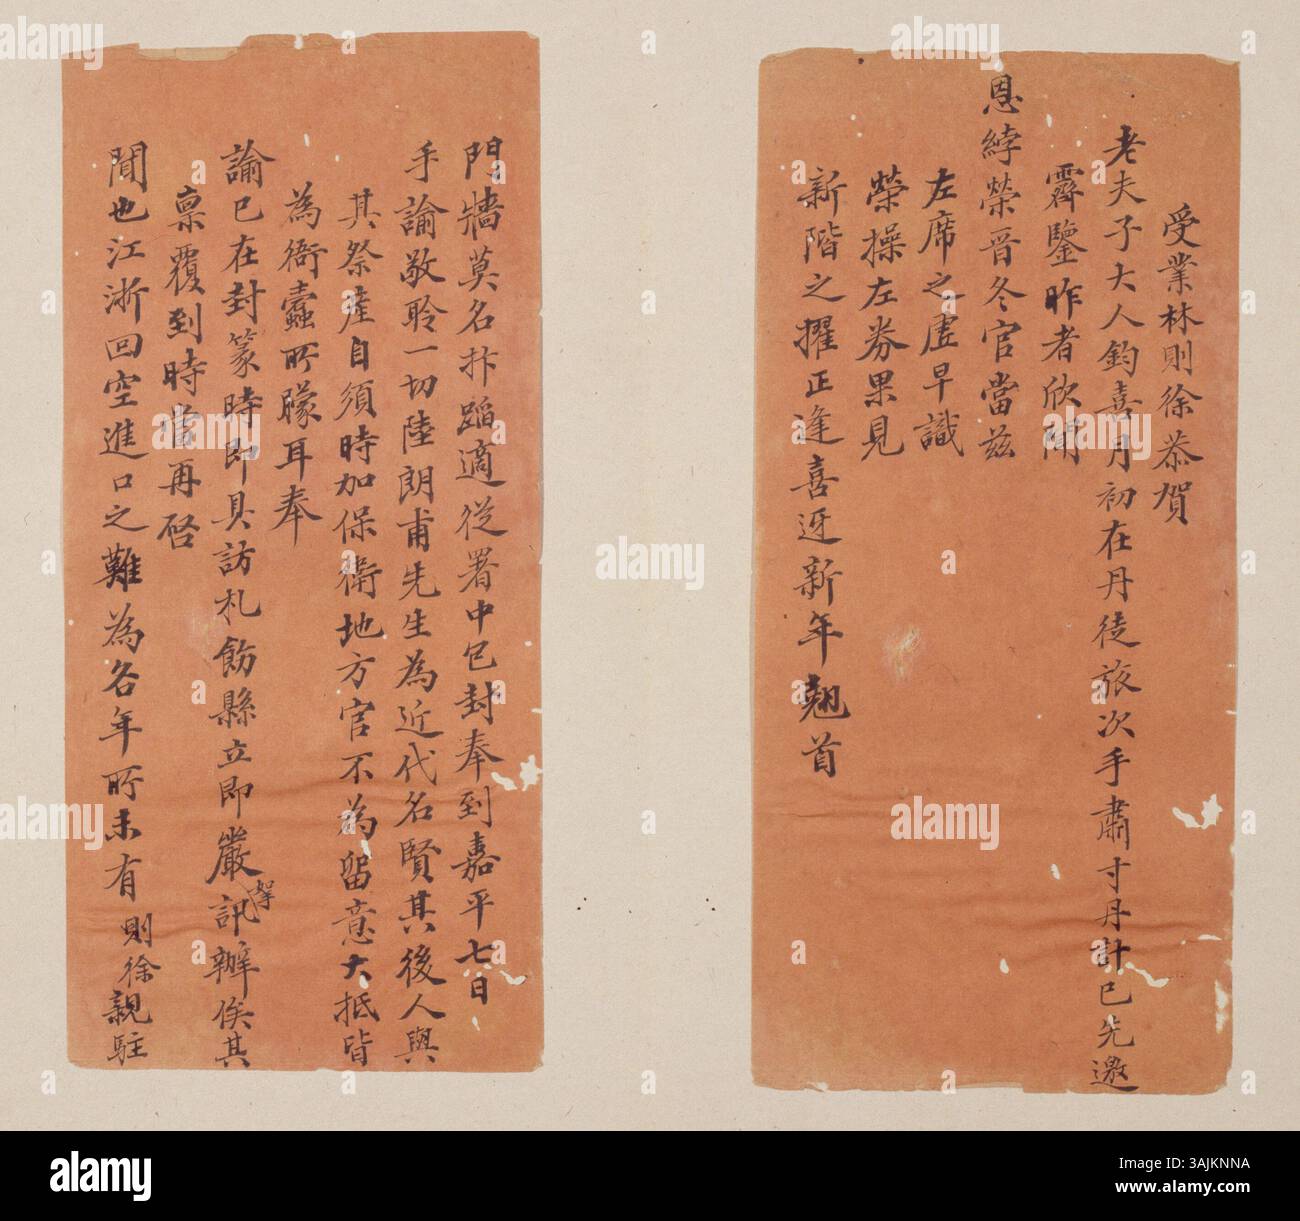 受業林則徐恭賀
老夫子大人鈞喜月初在丹徒旅次手肅寸丹計已先邀
霽鑒昨者欣聞
恩綍榮晉冬官當茲
左席之虛早識
榮操左券果見
新階之擢正逢喜迓新年翹首
門牆莫名抃蹈適從署中包封奉到嘉平七日
手諭敬聆一切陸朗甫先生為近代名賢其後人與
其祭產自須時加保衛地方官不為留意大抵皆
為衙蠹所朦耳奉
諭已在封篆時即具訪札飭縣立即嚴訊辦俟其
稟覆到時當再啓
聞也江浙回空進口之難為各年所未有則徐親駐
alamy
Image ID: 3AJKNNA
www.alamy.com